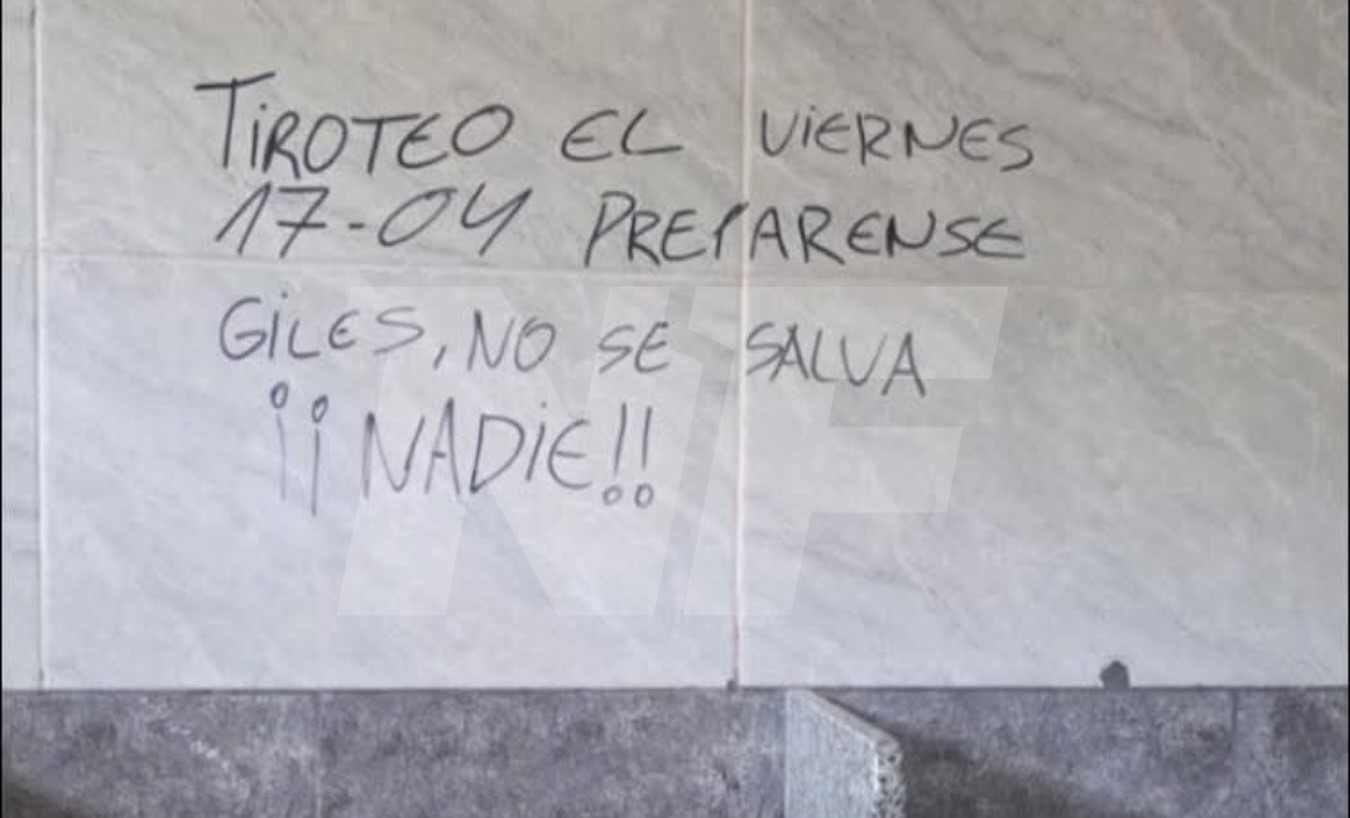 TiROTEO EL ViERNES
17-04 PREPARENSE
GiLES, NO SE SALVA
¡¡NADiE!!
NF